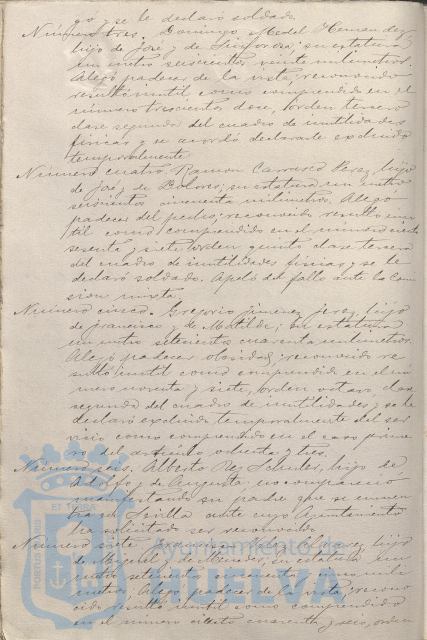 go, y se le declaró soldado.
Número tres. Domingo Medel Hernandez,
hijo de José y de Sinforosa; su estatura
un metro seiscientos veinte milimetros.
Alegó padecer de la vista; reconocido
resultó inutil como comprendido en el
número trescientos doce, orden tercero
clase segunda del cuadro de inutilidades
físicas y se acordó declararle excluido
temporalmente.
Número cuatro. Ramon Carrasco Perez, hijo
de José y de Dolores; su estatura un metro
seiscientos cincuenta milimetros. Alegó
padecer del pecho; reconocido resultó inu-
til como comprendido en el número ciento
sesenta y siete, orden quinto clase tercera
del cuadro de inutilidades físicas y se le
declaró soldado. Apeló del fallo ante la Comi-
sion mixta.
Número cinco. Gregorio Jimenez Jerez, hijo
de Francisco y de Matilde; su estatura
un metro setecientos cuarenta milimetros.
Alegó padecer ; reconocido re-
sultó inutil como comprendido en el nú-
mero noventa y siete, orden octavo clase
segunda del cuadro de inutilidades; se le
declaró excluido temporalmente del ser-
vicio como comprendido en el caso prime-
ro del artículo ochenta y tres.
Número seis. Alberto Rey Schuler, hijo de
Adolfo y de Augusta, no compareció
manifestando su padre que se encuen-
tra en Sevilla ante cuyo Ayuntamiento
ha solicitado ser reconocido.
Número siete. hijo
de Miguel y de Mercedes, su estatura un
metro setecientos cincuenta y mili-
metros; Alegó padecer de la vista; recono-
cido resultó inutil como comprendido
en el número ciento cuarenta y seis, orden
PORTUS MARIS ET TERRÆ
Ayuntamiento de
HUELVA